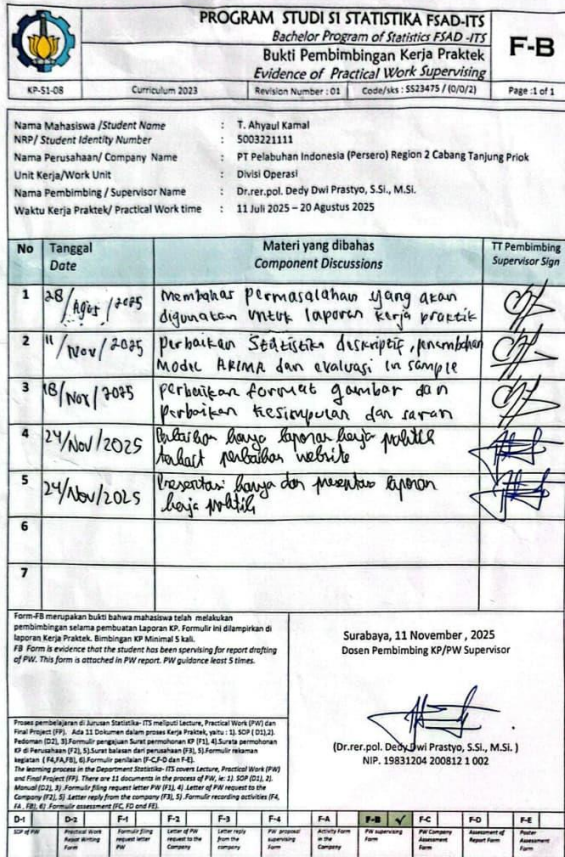 PROGRAM STUDI S1 STATISTIKA FSAD-ITS
Bachelor Program of Statistics FSAD -ITS
Bukti Pembimbingan Kerja Praktek
Evidence of Practical Work Supervising
F-B
KP-S1-08
Curriculum 2023
Revision Number : 01
Code/sks : SS23475 / (0/0/2)
Page :1 of 1
Nama Mahasiswa /Student Name : T. Ahyaul Kamal
NRP/ Student Identity Number : 5003221111
Nama Perusahaan/ Company Name : PT Pelabuhan Indonesia (Persero) Region 2 Cabang Tanjung Priok
Unit Kerja/Work Unit : Divisi Operasi
Nama Pembimbing / Supervisor Name : Dr.rer.pol. Dedy Dwi Prastyo, S.Si., M.Si.
Waktu Kerja Praktek/ Practical Work time : 11 Juli 2025 – 20 Agustus 2025
No
Tanggal
Date
Materi yang dibahas
Component Discussions
TT Pembimbing
Supervisor Sign
1 28/Agus/2025 Membahas permasalahan yang akan
digunakan untuk laporan kerja praktik
2 11/Nov/2025 perbaikan Statistika deskriptif, penambahan
Model ARIMA dan evaluasi in sample
3 18/Nov/2025 perbaikan format gambar dan
perbaikan kesimpulan dan saran
4 24/Nov/2025 laporan
perbaikan website
5 24/Nov/2025 Presentasi dan laporan
6
7
Form-FB merupakan bukti bahwa mahasiswa telah melakukan
pembimbingan selama pembuatan Laporan KP. Formulir ini dilampirkan di
laporan Kerja Praktek. Bimbingan KP Minimal 5 kali.
FB Form is evidence that the student has been spervising for report drafting
of PW. This form is attached in PW report. PW guidance least 5 times.
Surabaya, 11 November , 2025
Dosen Pembimbing KP/PW Supervisor
(Dr.rer.pol. Dedy Dwi Prastyo, S.Si., M.Si. )
NIP. 19831204 200812 1 002
Proses pembelajaran di Jurusan Statistika- ITS meliputi Lecture, Practical Work (PW) dan
Final Project (FP). Ada 11 Dokumen dalam proses Kerja Praktek, yaitu : 1). SOP ( D1),2).
Pedoman (D2), 3).Formulir pengajuan Surat permohonan KP (F1), 4).Surata permohonan
KP di Perusahaan (F2), 5).Surat balasan dari perusahaan (F3), 5).Formulir rekaman
kegiatan ( F4,FA,FB), 6).Formulir penilaian (F-C,F-D dan F-E).
The learning process in the Department Statistika- ITS covers Lecture, Practical Work (PW)
and Final Project (FP). There are 11 documents in the process of PW, ie: 1). SOP (D1), 2).
Manual (D2), 3). Formulir filing request letter PW (F1), 4). Letter of PW request to the
Company (F2), 5). Letter reply from the company (F3), 5). Formulir recording activities (F4,
FA , FB), 6). Formulir assessment (FC, FD and FE).
D-1 D-2 F-1 F-2 F-3 F-4 F-A F-B ✓ F-C F-D F-E
SOP of PW
Practical Work Report Writing Form
Formulir filing request letter PW
Letter of PW request to the Company
Letter reply from the company
PW proposal supervising Form
Activity Form in the Company
PW supervising Form
PW Company Assessment Form
Assessment of Report Form
Poster Assessment Form